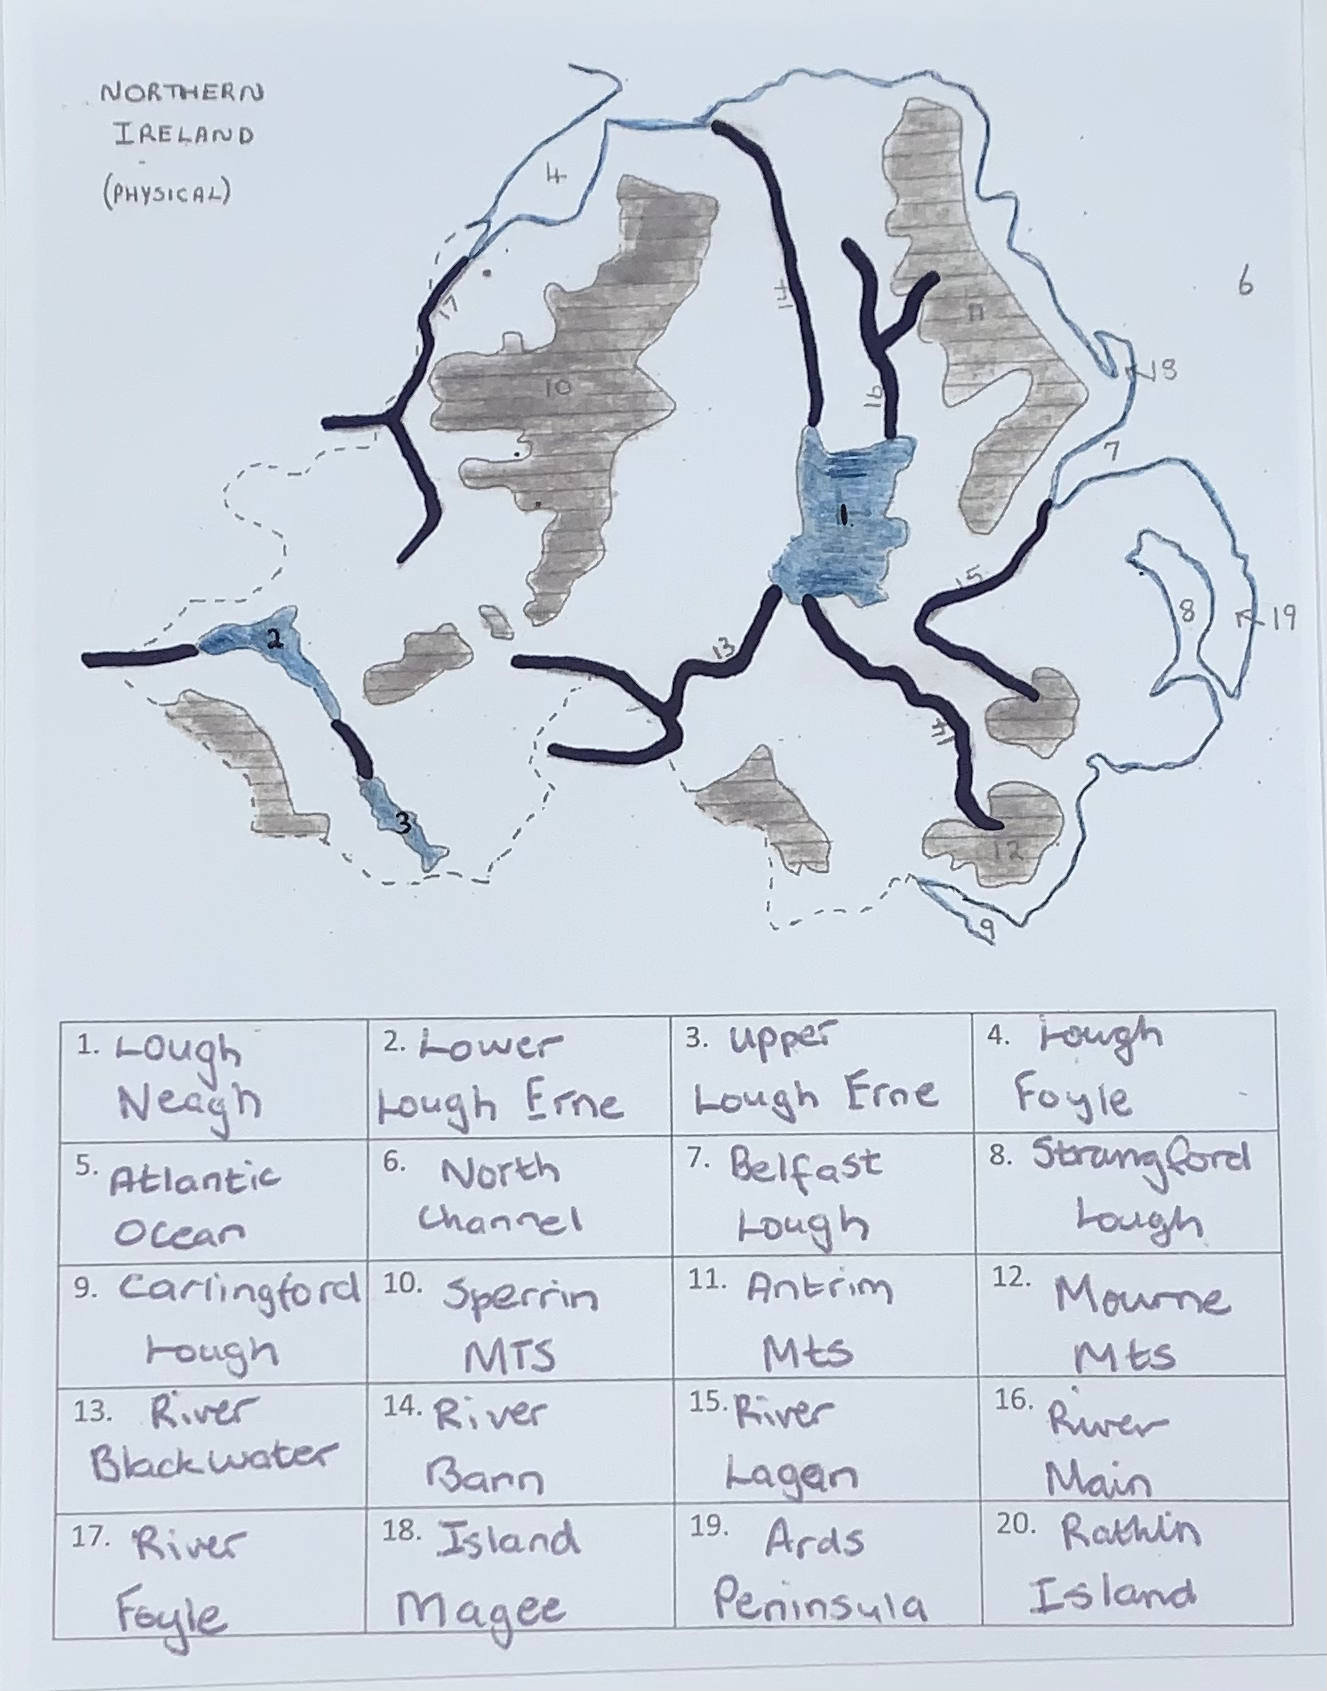 NORTHERN
IRELAND
(PHYSICAL)
4
6
17
14
11
10
18
16
7
1
15
8
19
2
13
14
3
12
9
1. Lough
Neagh
2. Lower
Lough Erne
3. Upper
Lough Erne
4. Lough
Foyle
5. Atlantic
Ocean
6. North
Channel
7. Belfast
Lough
8. Strangford
Lough
9. Carlingford
Lough
10. Sperrin
MTS
11. Antrim
Mts
12. Mourne
Mts
13. River
Blackwater
14. River
Bann
15. River
Lagan
16. River
Main
17. River
Foyle
18. Island
Magee
19. Ards
Peninsula
20. Rathlin
Island